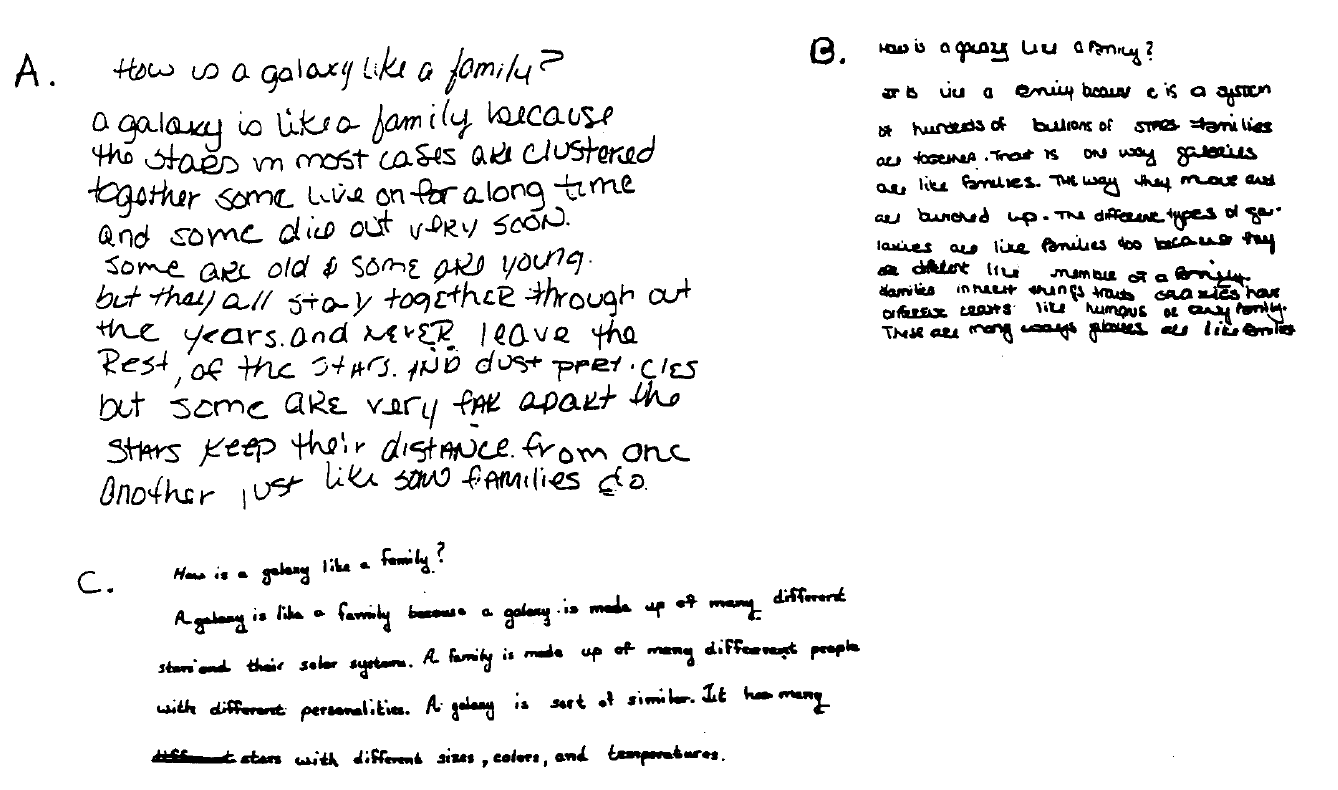 A. How is a galaxy like a family?
a galaxy is like a family because
the stars in most cases are clustered
together some live on for a long time
and some dice out very soon.
some are old & some are young.
but they all stay together through out
the years. and never leave the
Rest, of the stars. AND dust particles
but some are very far apart the
stars keep their distance. from one
Another just like some families do.
B. How is a galaxy like a family?
It is like a family because it is a system
of hundreds of billions of stars families
are together. That is one way galaxies
are like families. The way they move and
are bunched up. The different types of ga-
laxies are like families too because they
are different like members of a family.
families inherit things traits galaxies have
different like humans or any family.
These are many ways galaxies are like families
C. How is a galaxy like a family?
A galaxy is like a family because a galaxy is made up of many different
stars and their solar systems. A family is made up of many different people
with different personalities. A galaxy is sort of similar. It has many
different stars with different sizes, colors, and temperatures.